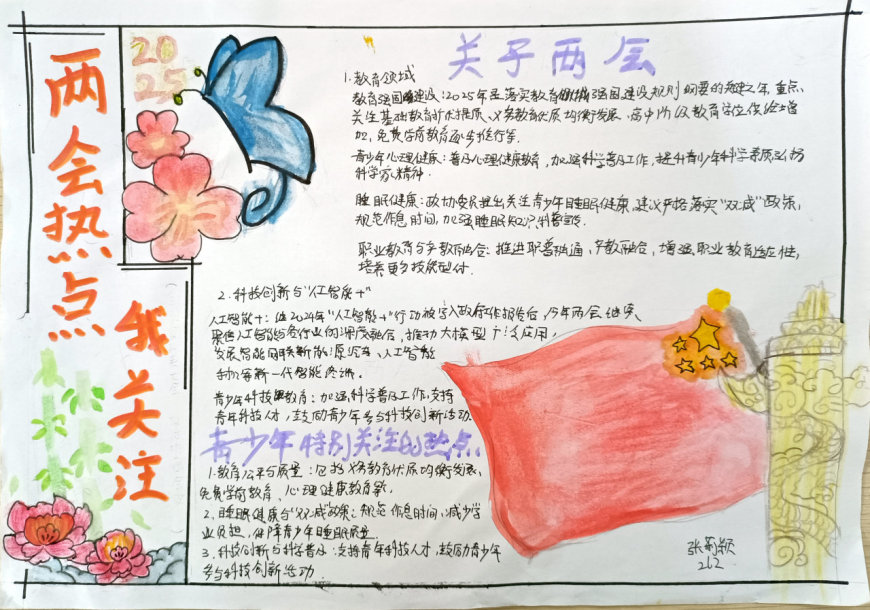 两会热点
我关注
2025
关于两会
1.教育领域
教育强国建设:2025年是落实教育强国建设规划纲要的关键之年,重点
关注基础教育扩优提质、义务教育优质均衡发展、高中阶段教育学位供给增
加,免费学前教育逐步推行等.
青少年心理健康:普及心理健康教育,加强科学普及工作,提升青少年科学素质,弘扬
科学家精神.
睡眠健康:政协委员提出关注青少年睡眠健康,建议严格落实“双减”政策,
规范作息时间,加强睡眠知识科普.
职业教育与产教融合:推进职普融通、产教融合,增强职业教育适应性,
培养更多技能型人才.
2.科技创新与“人工智能+”
人工智能+:继2024年“人工智能+”行动被写入政府工作报告后,今年两会继续
聚焦人工智能与各行业的深度融合,推动大模型广泛应用,
发展智能网联新能源汽车、人工智能
手机等新一代智能终端.
青少年科技教育:加强科学普及工作,支持
青年科技人才,鼓励青少年参与科技创新活动.
青少年特别关注的热点
1.教育公平与质量:包括义务教育优质均衡发展、
免费学前教育、心理健康教育等.
2.睡眠健康与“双减”政策:规范作息时间,减少学
业负担,保障青少年睡眠质量
3.科技创新与科学普及:支持青年科技人才,鼓励青少年
参与科技创新活动
张莉颖
212